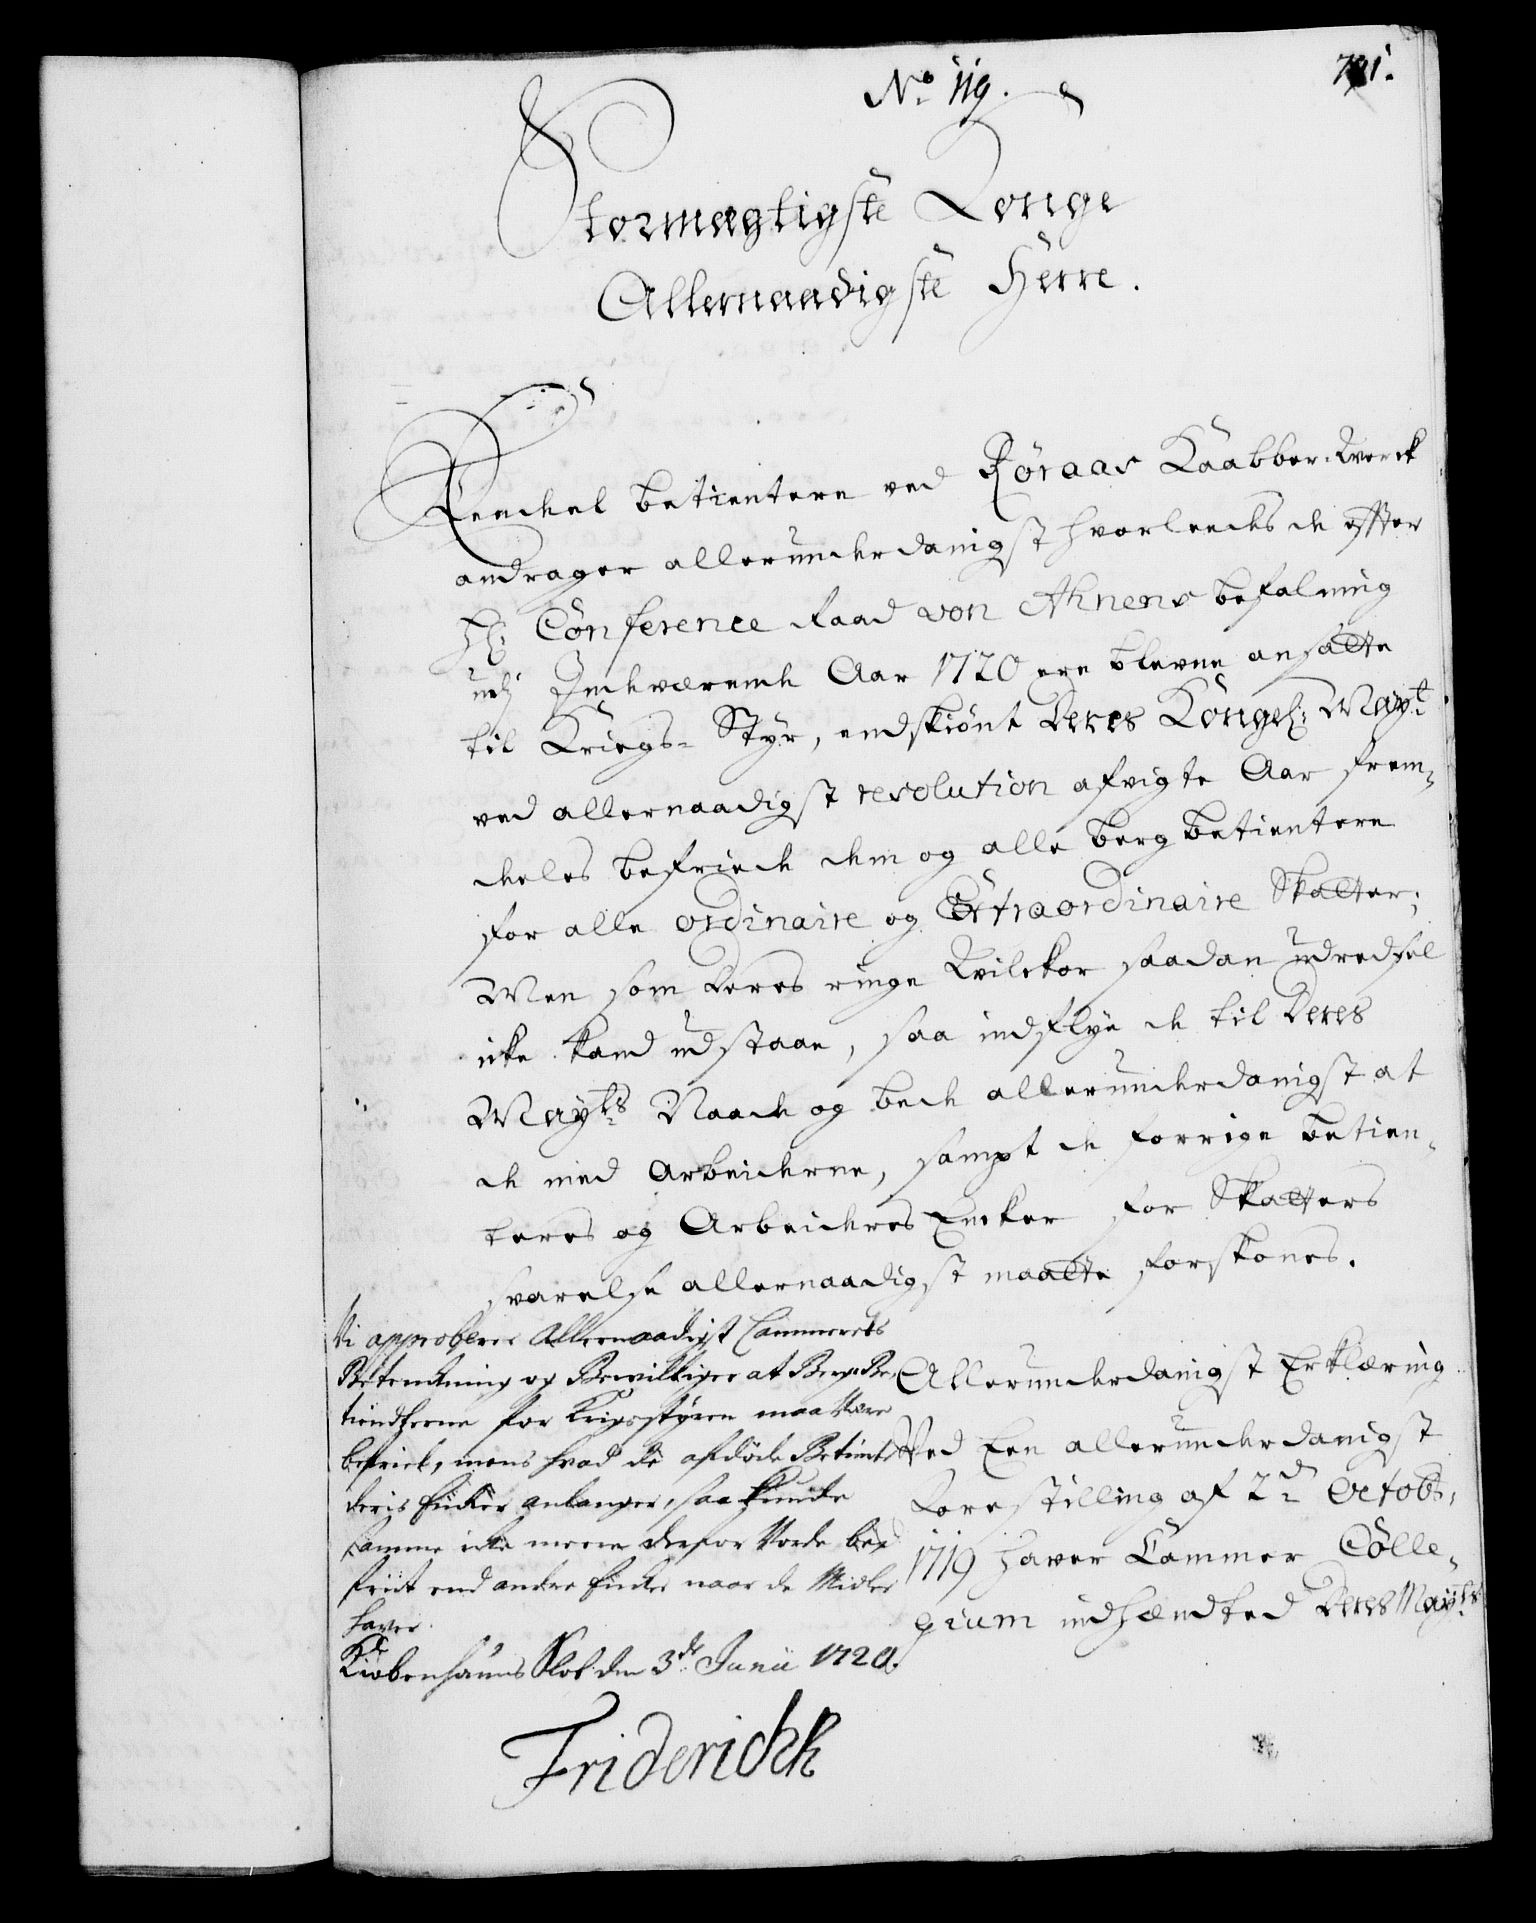 No. 119.
721.
Stormægtigste Konge
Allernaadigste Herre.
betientere ved Röraas Kaabber-Werck
andrager allerunderdanigst hvorledes de effter
Hr: Conference Raad von Ahnens befalning
udj Indeværende Aar 1720 ere blevne ansatte
til Kriegs-Styr, endskiönt Deres Kongel: Mayt.
ved allernaadigst resolution afvigte Aar frem-
deles befriede dem og alle berg betientere
for alle ordinaire og Extraordinaire Skatter;
Men som deres ringe Vilckor saadan udredsel
icke kand udstaae, saa indflye de til Deres
Mayts. Naade og bede allerunderdanigst at
de med Arbeiderne, sampt de forrige betien-
teres og Arbeideres Encker for Skatters
svarelse allernaadigst maatte forskones.
Allerunderdanigst Erklæring
Ved Een allerunderdanigst
Forestilling af 2d. Octobr.
1719 haver Cammer Colle-
gium indhændted Deres Mayts.
Vi approberer Allernaadigst Cammerets
Betenckning og Bevilliger at Berg-Be-
tiendterne for Krigsstyren maa være
befriet, mens hvad de afdöde Betient-
teris Encker anlanger, saa kunde
samme icke meere derfor vorde be-
friit end andre Encker naar de Midler
haver.
Kiöbenhauns Slot den 3de Junii 1720.
Friderich R